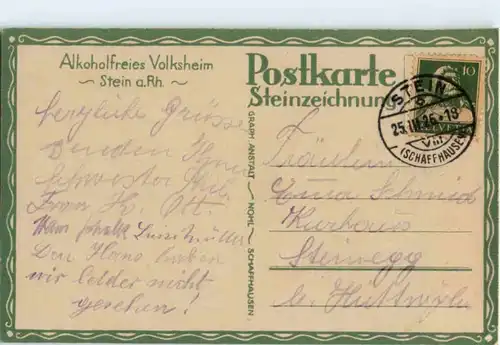 Alkoholfreies Volksheim
~ Stein a.Rh. ~
herzliche Grüsse
senden Ihnen
Schwester
Frau H. Ott.
Den Hans haben
wir leider nicht
gesehen!
Postkarte
Steinzeichnun
GRAPH. ANSTALT NOHL, SCHAFFHAUSEN.
10
HELVETIA
STEIN
25.III.25.-18
VIII
(SCHAFFHAUSEN)
Fräulein
Schmid
Kurhaus
b. Huttwyl